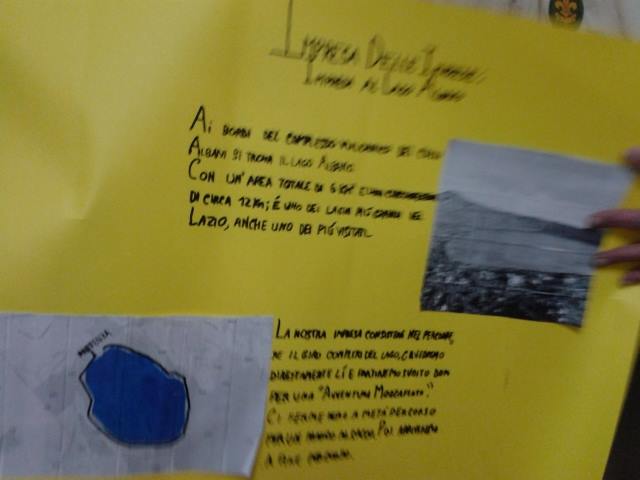 Impresa Delle Iguane:
Impresa al Lago Albano
Ai bordi del complesso vulcanico dei Colli
Albani si trova il lago Albano.
Con un'area totale di 6 km² e una circonferenza
di circa 12 km; é uno dei laghi più grandi del
Lazio, anche uno dei più visitati.
Partenza
La nostra impresa consiste nel percorre
re il giro completo del lago, ci vedremo
direttamente lì e partiremo subito dopo
per una "Avventura Mozzafiato!"
Ci fermeremo a metà percorso
per un pranzo al sacco. Poi
a fine